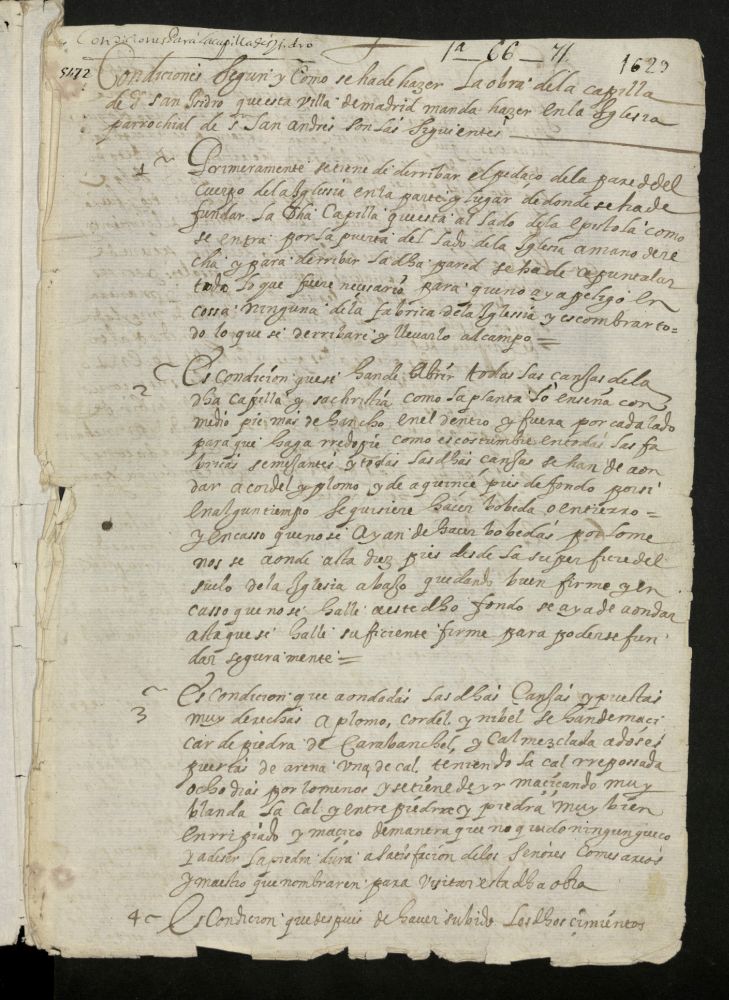 Condiciones para la capilla de sn ysidro
1ª - 66 - 71
1629
5172
Condiciones segun y como se ha de hazer la obra de la capilla
de sr san isidro que esta villa de madrid manda hazer en la yglesia
parrochial de sr san andres son las siguientes
1 Primeramente se tiene de derribar el pedaço de la pared del
cuerpo de la yglesia en la parte y lugar de donde se ha de
fundar la dha capilla que esta al lado de la epistola como
se entra por la puerta del lado de la yglesia a mano dere
cha y para derribar la dha pared se ha de apuntalar
todo lo que fuere necesario para que no aya peligro en
cossa ninguna de la fabrica de la yglesia y escombrar to=
do lo que se derribare y llevarlo al campo =
2 Es condicion que se han de abrir todas las canjas de la
dha capilla y sachristia como la planta lo enseña con
medio pie mas de hancho en el dentro y fuera por cada lado
para que haga rredopie como es costumbre en todas las fa
bricas semejantes y todas las dhas canjas se han de aon
dar a cordel y plomo y de a quince pies de fondo por si
en algun tiempo se quisiere hacer bobeda o entierro =
y en casso que no se ayan de hacer bobedas por lo me
nos se aonde asta diez pies desde la superficie del
suelo de la yglesia abajo quedando buen firme y en
casso que no se halle a este dho fondo se aya de aondar
asta que se halle suficiente firme para poderse fun
dar seguramente =
3 Es condicion que aondadas las dhas canjas y puestas
muy derechas a plomo, cordel y nibel se han de maci
çar de piedra de Carabanchel, y cal mezclada a dos es
puertas de arena una de cal, teniendo la cal rreposada
ocho dias por lo menos y se tiene de yr macicando muy
blanda la cal y entre piedra y piedra muy bien
enrripiado y maciço de manera que no quede ningun gueco
y a de ser la piedra dura a satisfacion de los señores comissarios
y maestro que nombraren para visitar esta dha obra
4 Es condicion que despues de haver subido los dhos cimientos